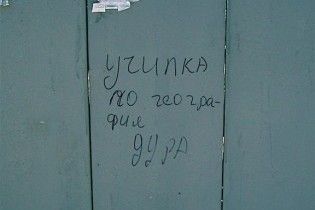 УЧИЛКА
ПО геогра-
фии
ДУРА